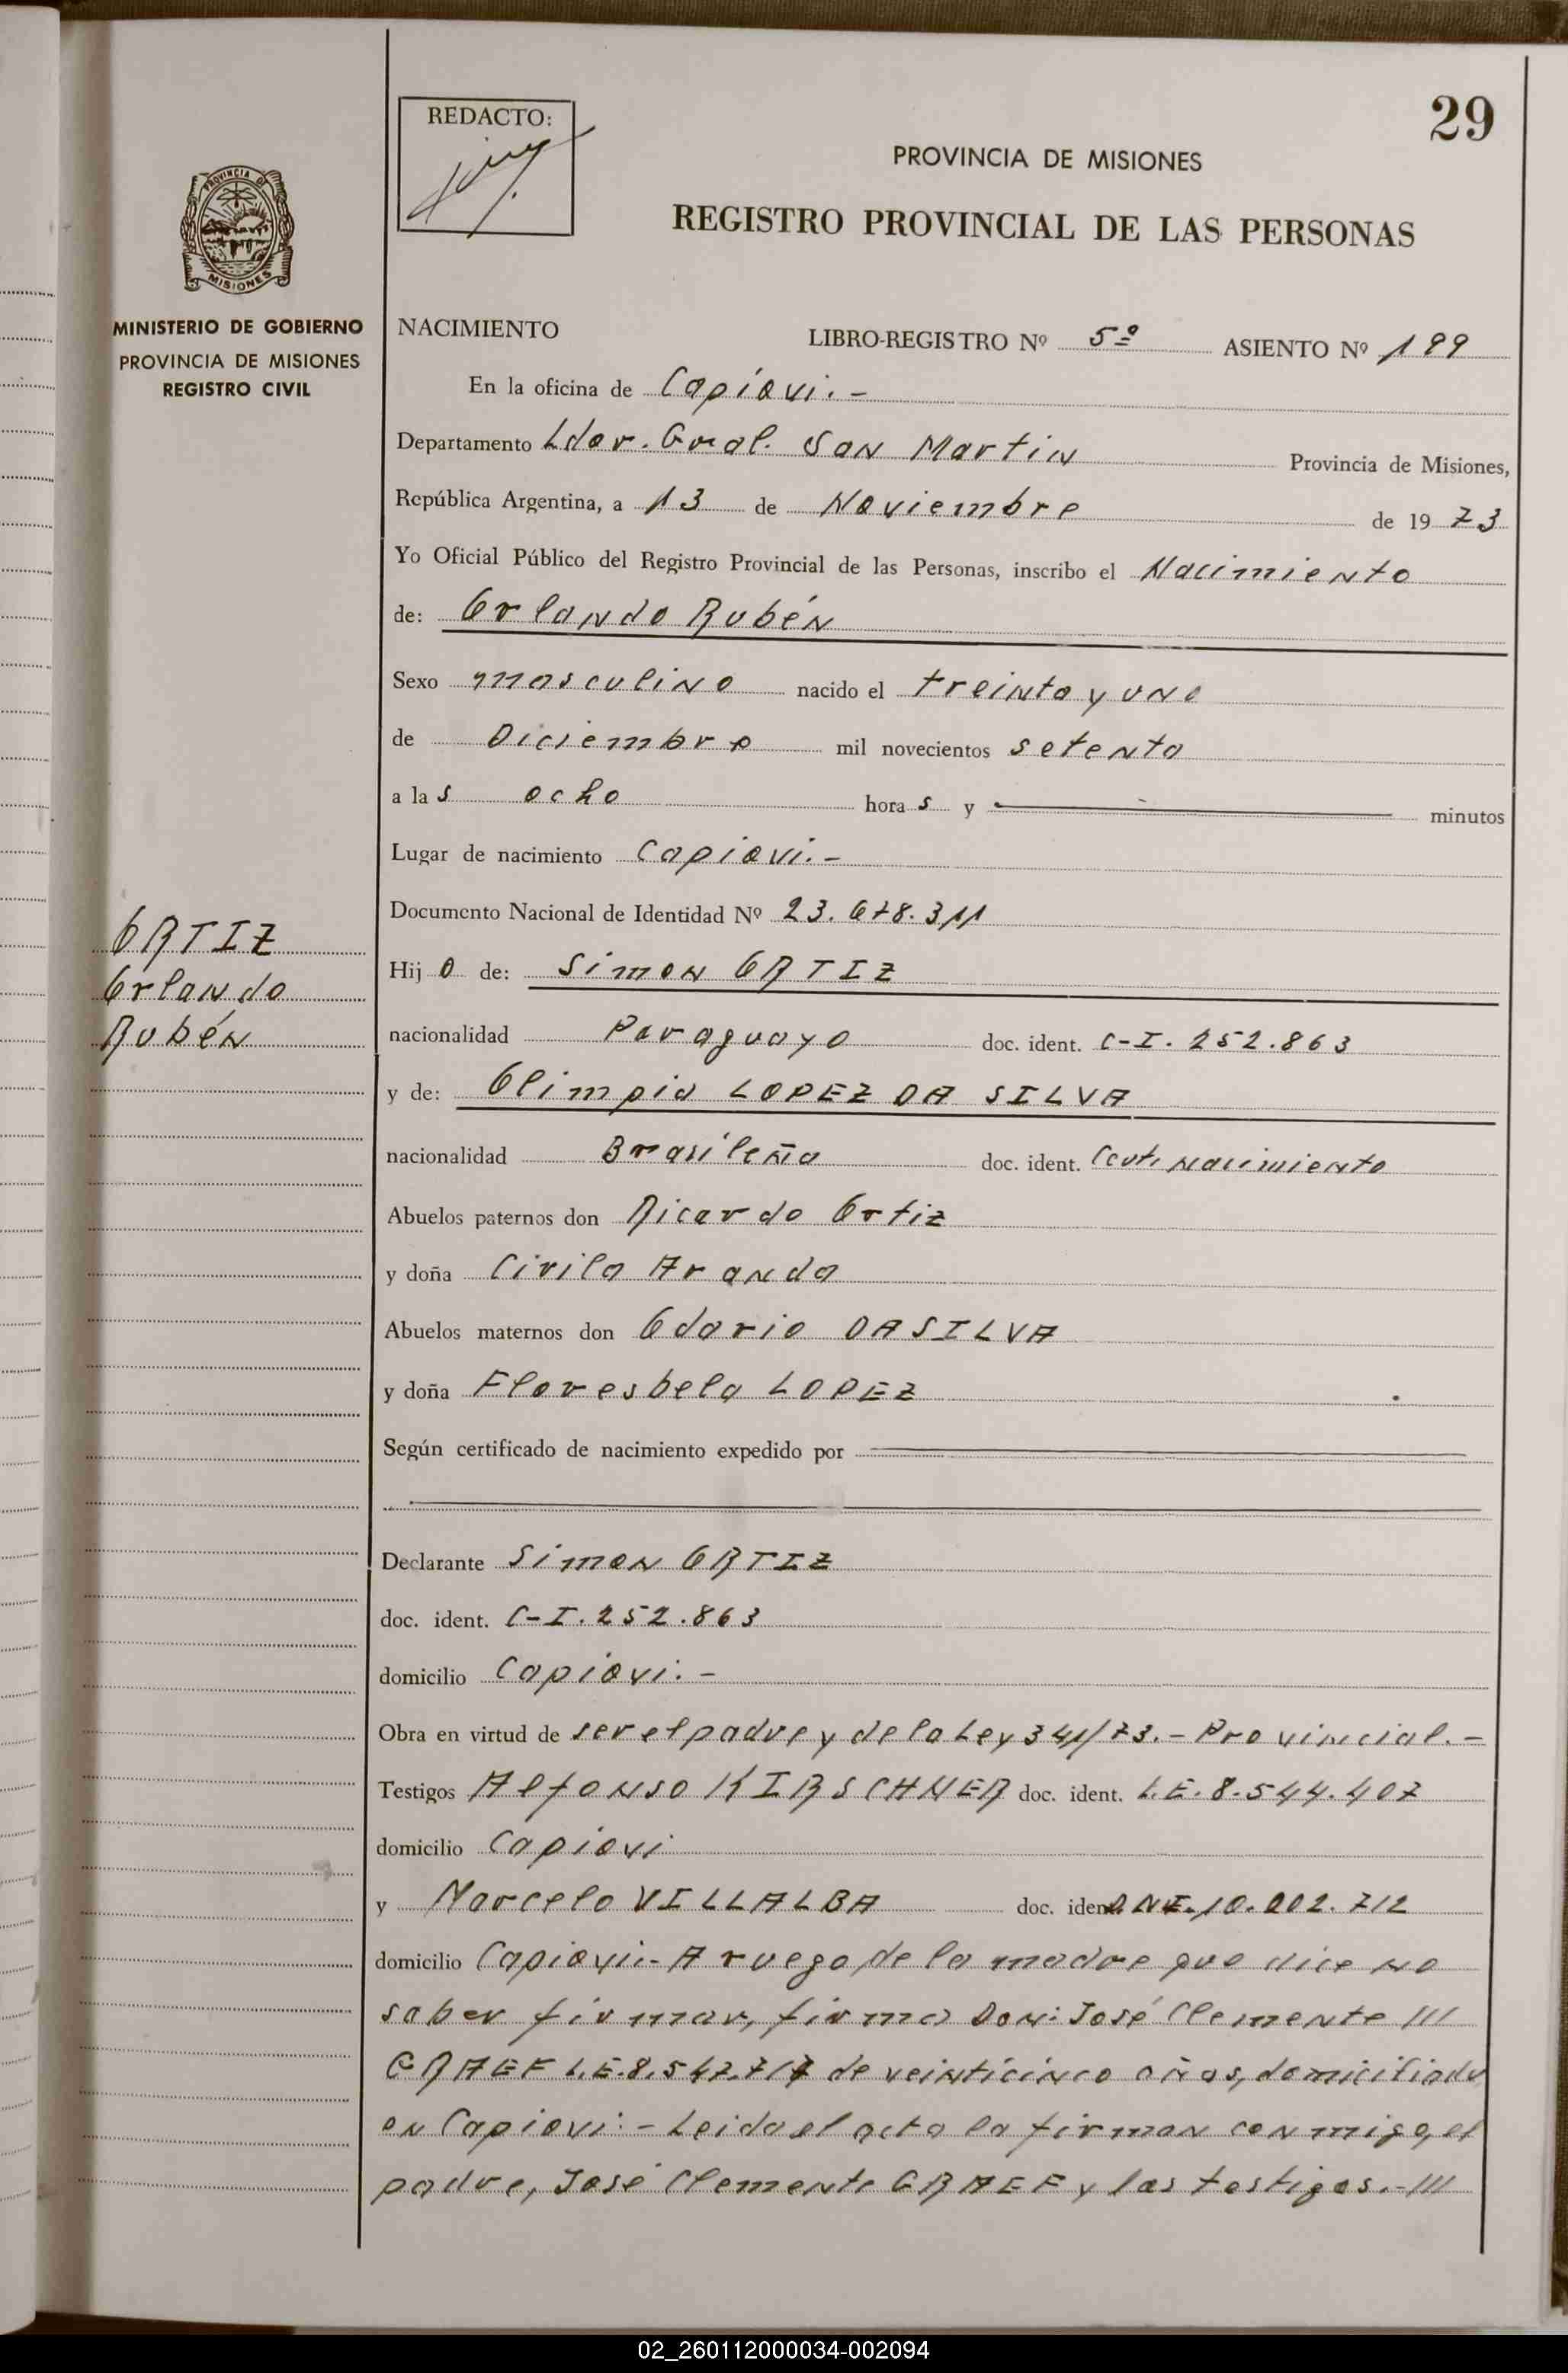 29
REDACTO:
PROVINCIA DE MISIONES
REGISTRO PROVINCIAL DE LAS PERSONAS
PROVINCIA DE
MISIONES
MINISTERIO DE GOBIERNO
PROVINCIA DE MISIONES
REGISTRO CIVIL
NACIMIENTO LIBRO-REGISTRO Nº 5º ASIENTO Nº 199
En la oficina de Capiovi.-
Departamento Ldor. Gral. San Martin Provincia de Misiones,
República Argentina, a 13 de Noviembre de 1973
Yo Oficial Público del Registro Provincial de las Personas, inscribo el Nacimiento
de: Orlando Rubén
Sexo masculino nacido el treinta y uno
de Diciembre mil novecientos setenta
a las ocho horas y minutos
Lugar de nacimiento Capiovi.-
Documento Nacional de Identidad Nº 23.678.311
ORTIZ
Orlando
Rubén
Hijo de: Simon ORTIZ
nacionalidad Paraguayo doc. ident. C-I. 252.863
y de: Olimpia LOPEZ DA SILVA
nacionalidad Brasileña doc. ident. Cert. nacimiento
Abuelos paternos don Ricardo Ortiz
y doña Cirila Aranda
Abuelos maternos don Odorio DASILVA
y doña Floresbela LOPEZ
Según certificado de nacimiento expedido por
Declarante Simon ORTIZ
doc. ident. C-I. 252.863
domicilio Capiovi.-
Obra en virtud de ser el padre y de la Ley 341/73.- Provincial.-
Testigos Alfonso KIRSCHNER doc. ident. L.E. 8.544.407
domicilio Capiovi
y Marcelo VILLALBA doc. ident. DNI. 10.002.712
domicilio Capiovi.- A ruego de la madre que dice no
saber firmar, firma Don: José Clemente ///
GRAEF L.E. 8.547.717 de veinticinco años, domiciliado
en Capiovi.- Leida el acta la firman conmigo, el
padre, José Clemente GRAEF y los testigos.-///
02_260112000034-002094